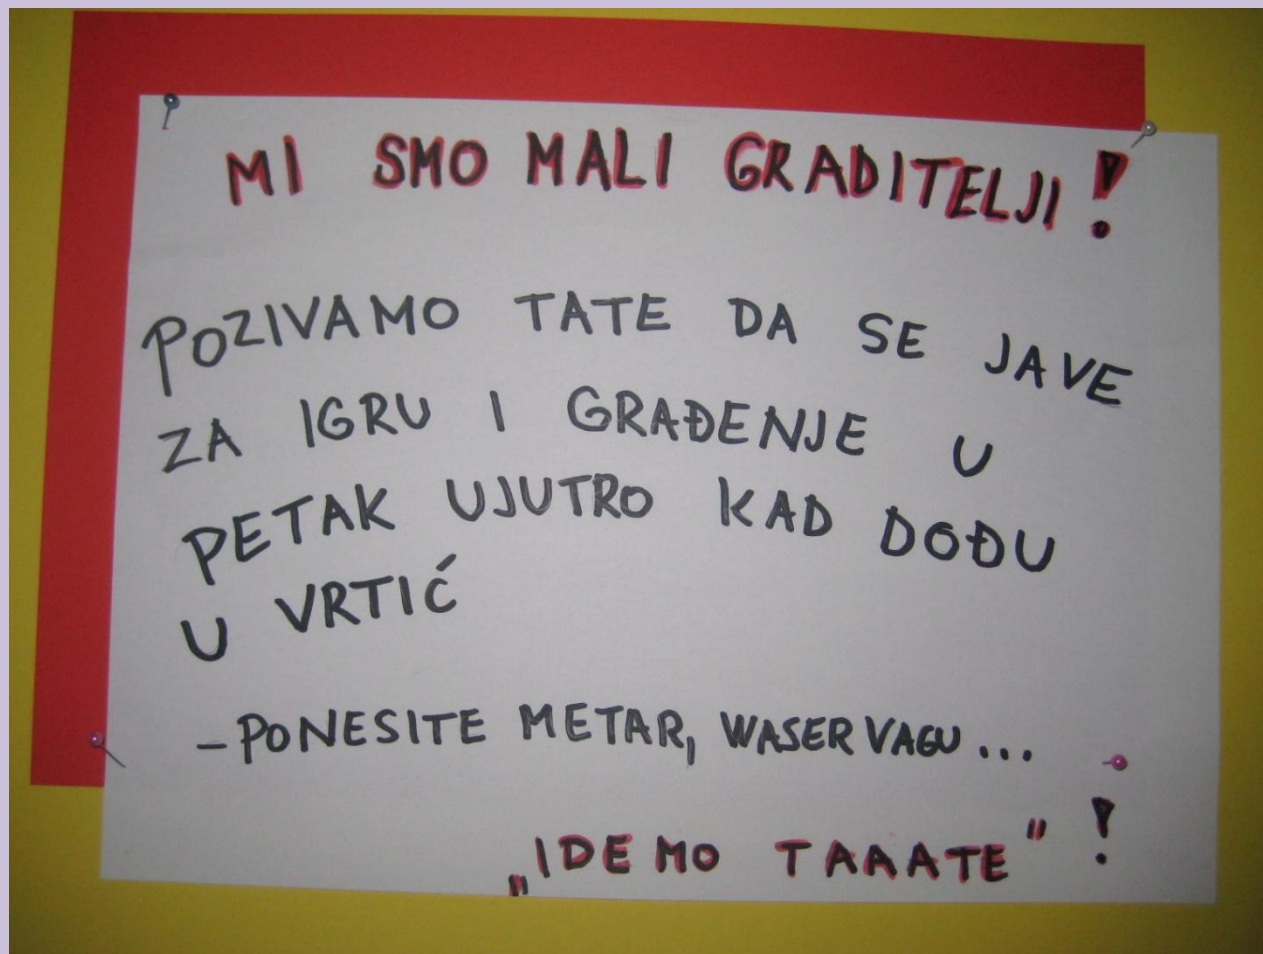 MI SMO MALI GRADITELJI!
POZIVAMO TATE DA SE JAVE
ZA IGRU I GRAĐENJE U
PETAK UJUTRO KAD DOĐU
U VRTIĆ
- PONESITE METAR, WASER VAGU...
„IDEMO TAAATE"!